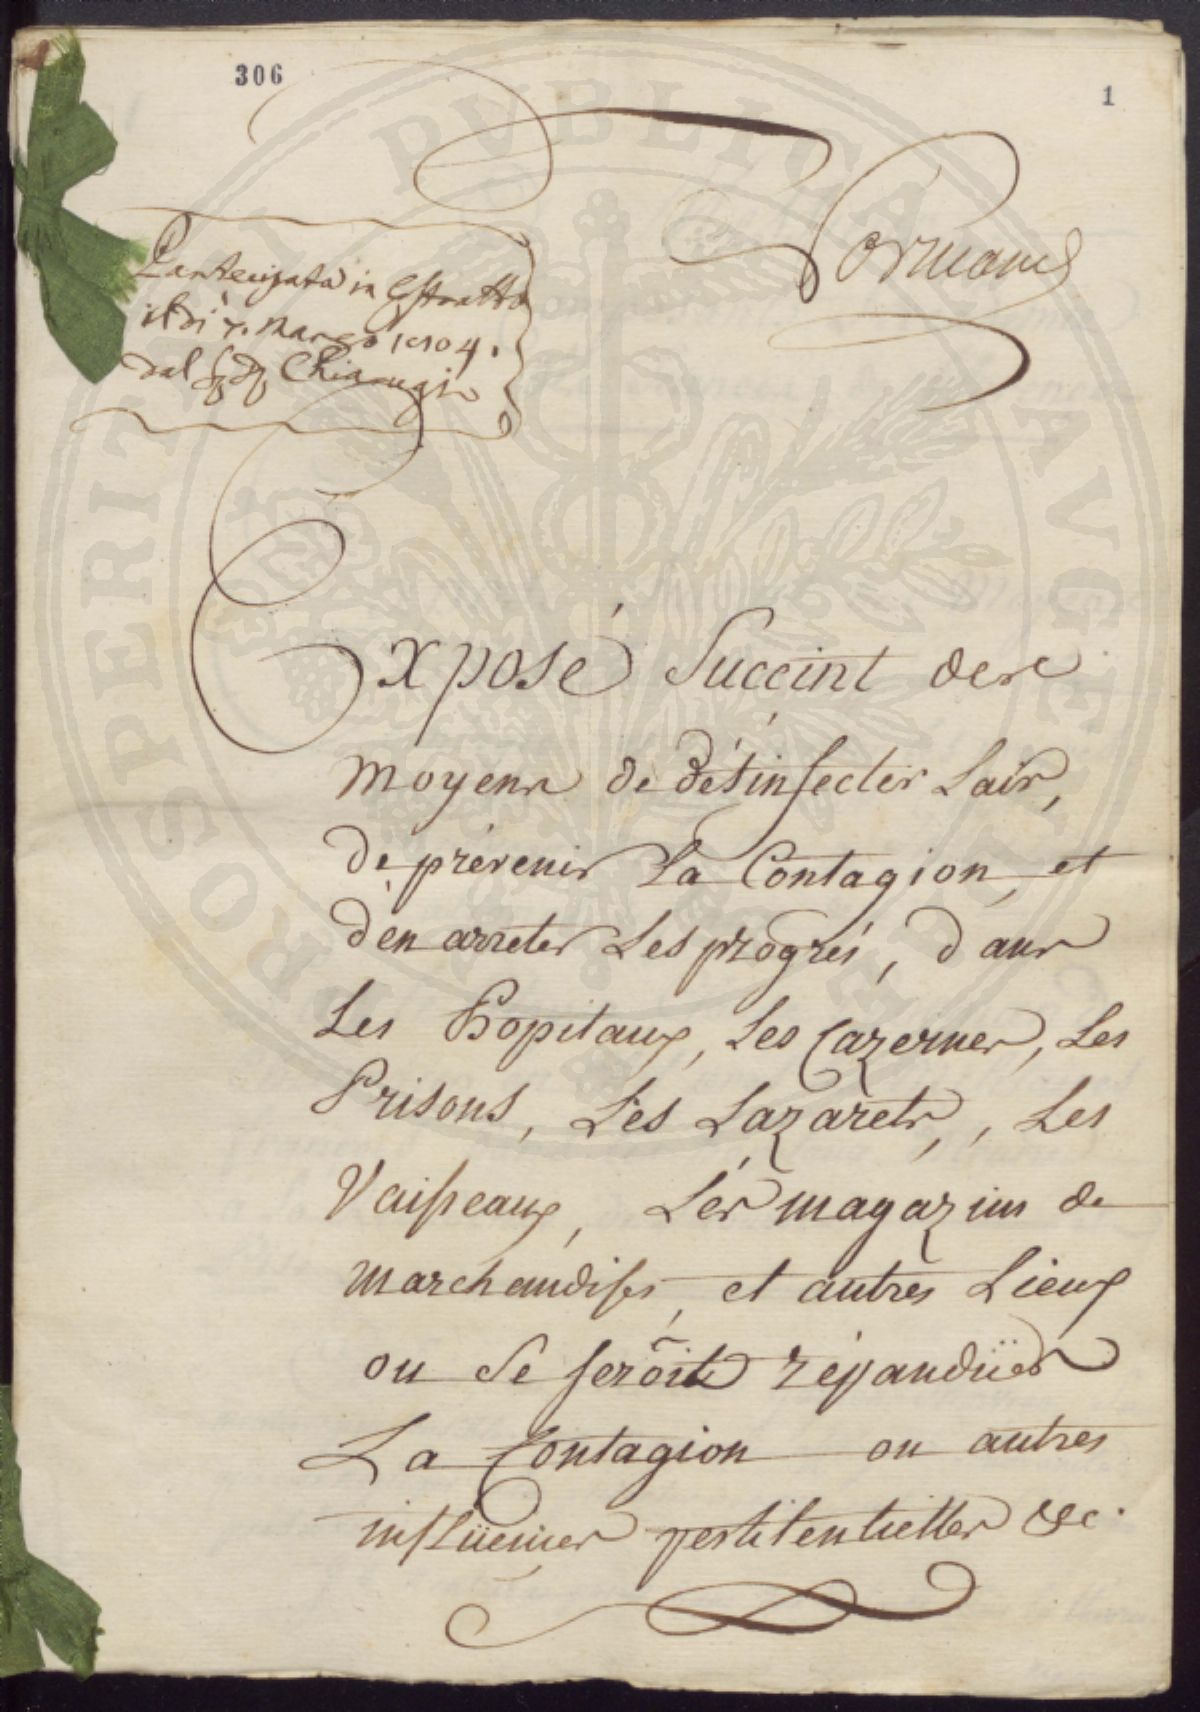 306
1
Normand
Partecipata in Estratto
il dì 7. Marzo 1804.
dal Chiarugi
Exposé Succint des
moyens de désinfecter Lair,
de prévenir La Contagion, et
d'en arreter Les progrés, dans
Les Hopitaux, Les Cazernes, Les
Prisons, Les Lazarets, Les
Vaisseaux, Les magazins de
marchandises, et autres Lieux
ou Se seroit répandües
La Contagion ou autres
inflüences pestilentielles &c.
PROSPERITATI PVBLICAE AVGE